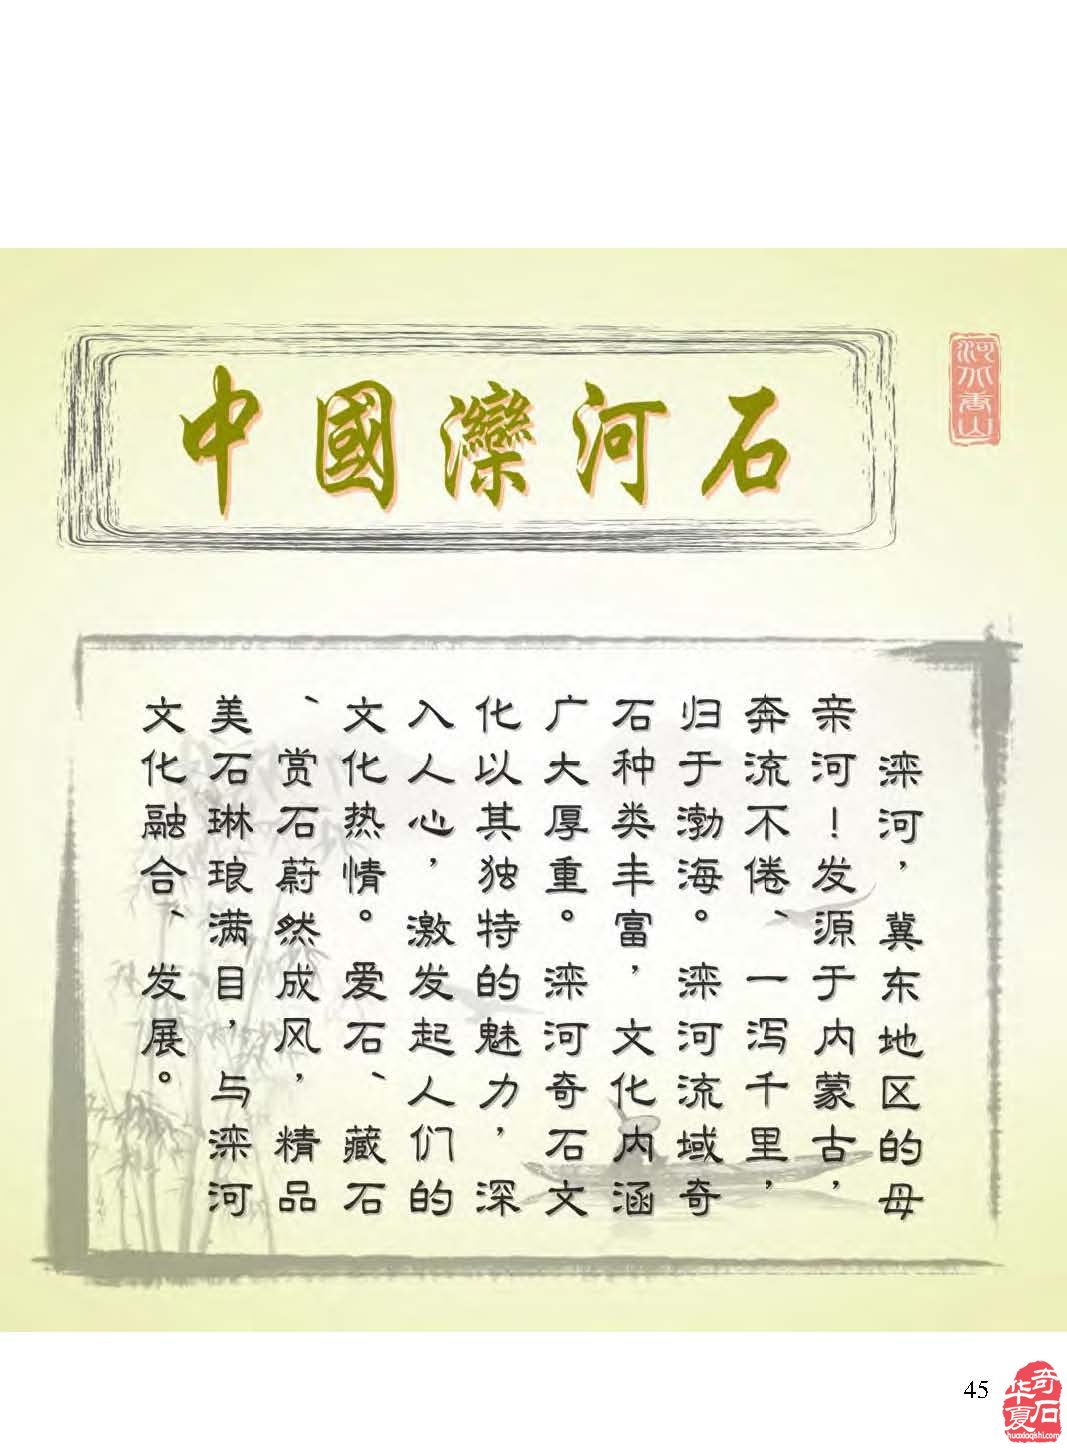 中國灤河石
河北香山
滦河，冀东地区的母
亲河！发源于内蒙古，
奔流不倦、一泻千里，
归于渤海。滦河流域奇
石种类丰富，文化内涵
广大厚重。滦河奇石文
化以其独特的魅力，深
入人心，激发起人们的
文化热情。爱石、藏石
、赏石蔚然成风，精品
美石琳琅满目，与滦河
文化融合、发展。
45
华夏奇石
huaxiaqishi.com